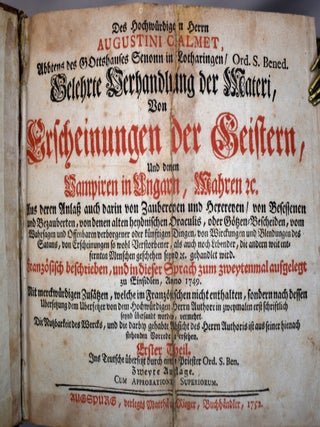 Des Hochwürdigen Herrn
AUGUSTINI CALMET,
Abbtens des GOttshauses Senonn in Lotharingen/ Ord. S. Bened.
Gelehrte Verhandlung der Materi,
Von
Erscheinungen der Geistern,
Und denen
Vampiren in Ungarn, Mahren ꝛc.
Aus deren Anlaß auch darin von Zaubereyen und Hexereyen, von Besessenen
und Bezauberten, von denen alten heydnischen Oraculis, oder Götzen-Bescheiden, vom
Wahrsagen und Offenbaren verborgener oder künftigen Dingen, von Würckungen und Blendungen des
Satans, von Erscheinungen so wohl Verstorbener, als auch noch Lebender, die andern weit ent-
fernten Menschen geschehen seynd ꝛc. gehandlet wird.
Französisch beschrieben, und in dieser Sprach zum zweytenmal aufgelegt
zu Einsidlen, Anno 1749.
Mit merckwürdigen Zusätzen, welche im Französischen nicht enthalten, sondern nach dessen
Übersetzung dem Übersetzer von dem Hochwürdigen Herrn Authore in zweymalen erst schriftlich
seynd überlasst worden, vermehrt.
Die Nutzbarkeit des Wercks, und die darbey gehabte Absicht des Herrn Authoris ist aus seiner hienach
stehenden Vorrede zu ersehen.
Erster Theil.
Ins Teutsche übersetzt durch einen Priester Ord. S. Ben.
Zweyte Auflage.
CUM APPROBATIONE SUPERIORUM.
AUGSPURG, verlegts Matthäus Rieger, Buchhändler, 1752.